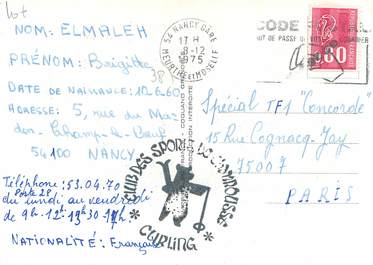 Lot
NOM: ELMALEH
PRÉNOM: Brigitte
38
DATE DE NAISSANCE: 12.6.60
ADRESSE: 5, rue du Ma
den-Champ-le-Bœuf
54100 NANCY
Téléphone: 53.04.70
Poste 28
du lundi au vendredi
de 9h-12h
NATIONALITÉ: Française
54 NANCY GARE
17 H
8-12
1975
MEURTHE ET MOSELLE
CODE
MOT DE PASSE
0.80
Spécial TF1 "Concorde"
15 Rue Cognacq-Jay
75007
PARIS
REPRODUCTION INTERDITE
CLUB DES SPORTS
CURLING